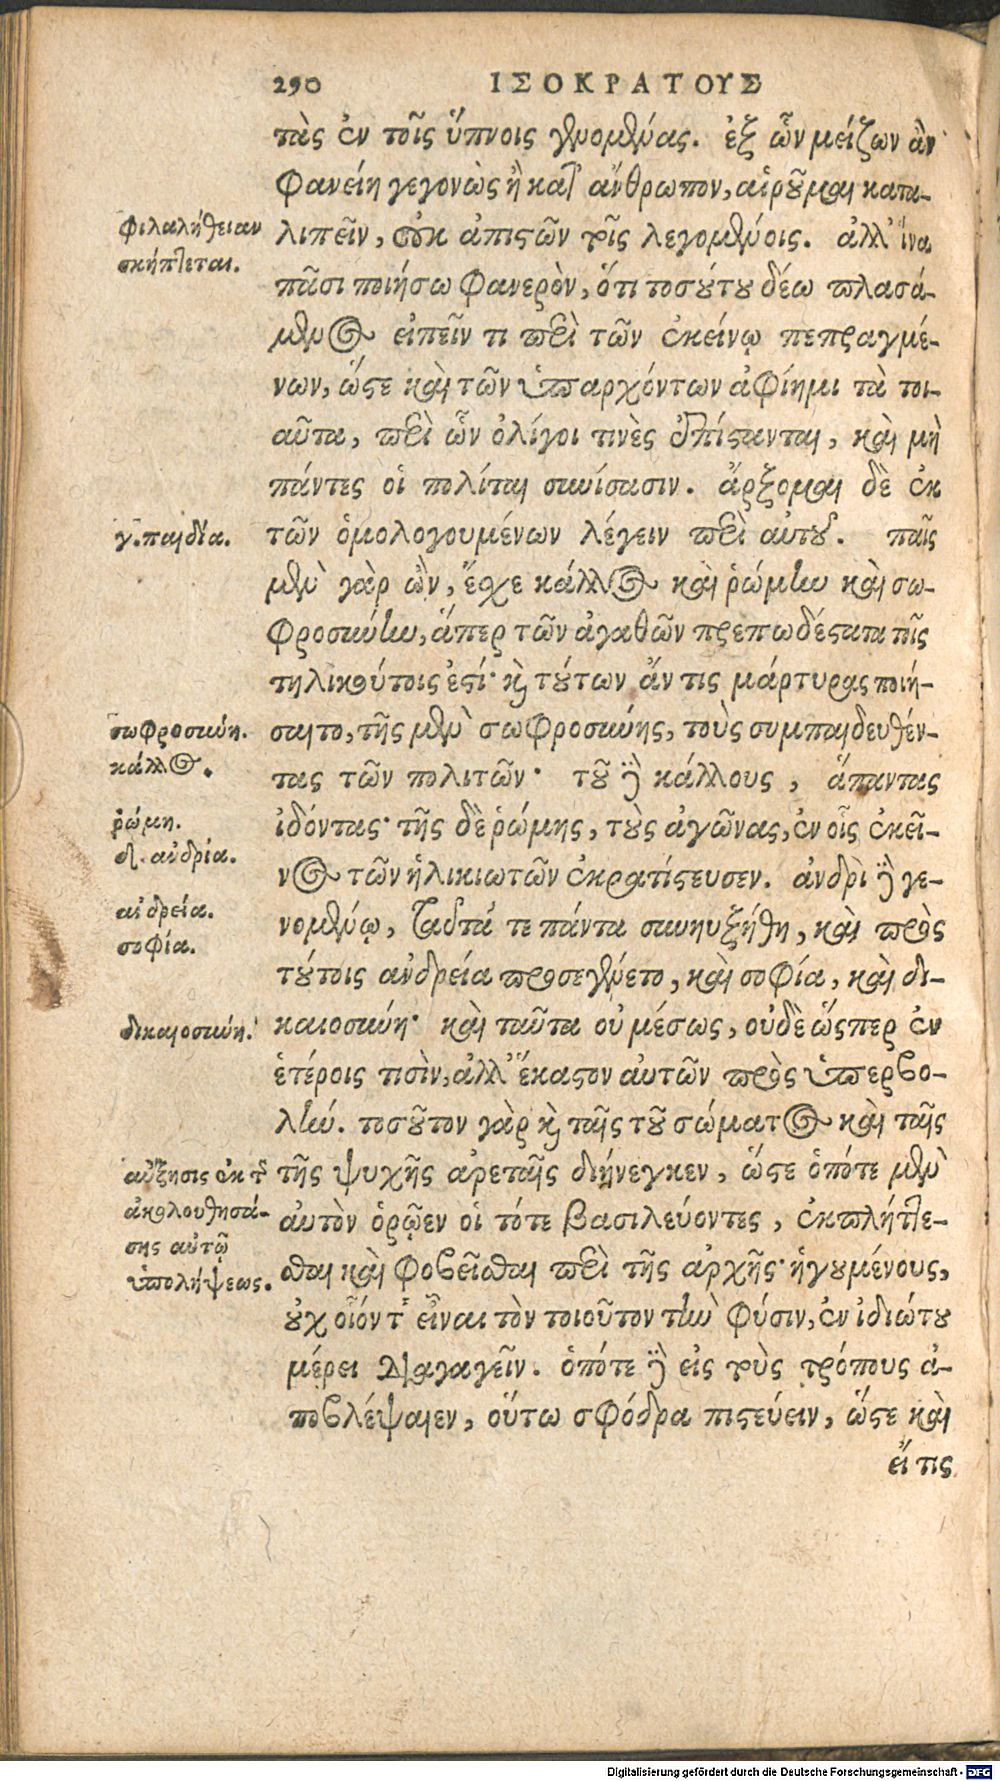 290 ΙΣΟΚΡΑΤΟΥΣ
τὰς ἐν τοῖς ὕπνοις γενομένας. ἐξ ὧν μείζων ἂν
φανείη γεγονὼς ἢ κατ' ἄνθρωπον, αἱροῦμαι κατα-
λιπεῖν, οὐκ ἀπιστῶν τοῖς λεγομένοις. ἀλλ' ἵνα
πᾶσι ποιήσω φανερὸν, ὅτι τοσούτου δέω πλασά-
μενος εἰπεῖν τι περὶ τῶν ἐκείνῳ πεπραγμέ-
νων, ὥστε καὶ τῶν ὑπαρχόντων ἀφίημι τὰ τοι-
αῦτα, περὶ ὧν ὀλίγοι τινὲς ἐπίστανται, καὶ μὴ
πάντες οἱ πολῖται συνίσασιν. ἄρξομαι δὲ ἐκ
τῶν ὁμολογουμένων λέγειν περὶ αὐτοῦ. παῖς
μὲν γὰρ ὢν, ἔσχε κάλλος καὶ ῥώμην καὶ σω-
φροσύνην, ἅπερ τῶν ἀγαθῶν πρεπωδέστατα τοῖς
τηλικούτοις ἐστί· καὶ τούτων ἄν τις μάρτυρας ποιή-
σαιτο, τῆς μὲν σωφροσύνης, τοὺς συμπαιδευθέν-
τας τῶν πολιτῶν· τοῦ δὲ κάλλους, ἅπαντας
ἰδόντας· τῆς δὲ ῥώμης, τοὺς ἀγῶνας, ἐν οἷς ἐκεῖ-
νος τῶν ἡλικιωτῶν ἐκρατίστευσεν. ἀνδρὶ δὲ γε-
νομένῳ, ταῦτά τε πάντα συνηυξήθη, καὶ πρὸς
τούτοις ἀνδρεία προσεγένετο, καὶ σοφία, καὶ δι-
καιοσύνη· καὶ ταῦτα οὐ μέσως, οὐδὲ ὥσπερ ἐν
ἑτέροις τισὶν, ἀλλ' ἕκαστον αὐτῶν πρὸς ὑπερβο-
λήν. τοσοῦτον γὰρ καὶ ταῖς τοῦ σώματος καὶ ταῖς
τῆς ψυχῆς ἀρεταῖς διήνεγκεν, ὥστε ὁπότε μὲν
αὐτὸν ὁρῷεν οἱ τότε βασιλεύοντες, ἐκπλήττε-
σθαι καὶ φοβεῖσθαι περὶ τῆς ἀρχῆς· ἡγουμένους,
οὐχ οἷόν τ' εἶναι τὸν τοιοῦτον τὴν φύσιν, ἐν ἰδιώτου
μέρει διαγαγεῖν. ὁπότε δὲ εἰς τοὺς τρόπους ἀ-
ποβλέψαιεν, οὕτω σφόδρα πιστεύειν, ὥστε καὶ
εἴ τις
φιλαλήθειαν
σκήπτεται.
γ. παιδία.
σωφροσύνη.
κάλλος.
ῥώμη.
δ. ἀνδρία.
ἀνδρεία.
σοφία.
δικαιοσύνη.
αὔξησις ἐκ τῆς
ἀκολουθησά-
σης αὐτῷ
ὑπολήψεως.
Digitalisierung gefördert durch die Deutsche Forschungsgemeinschaft - DFG